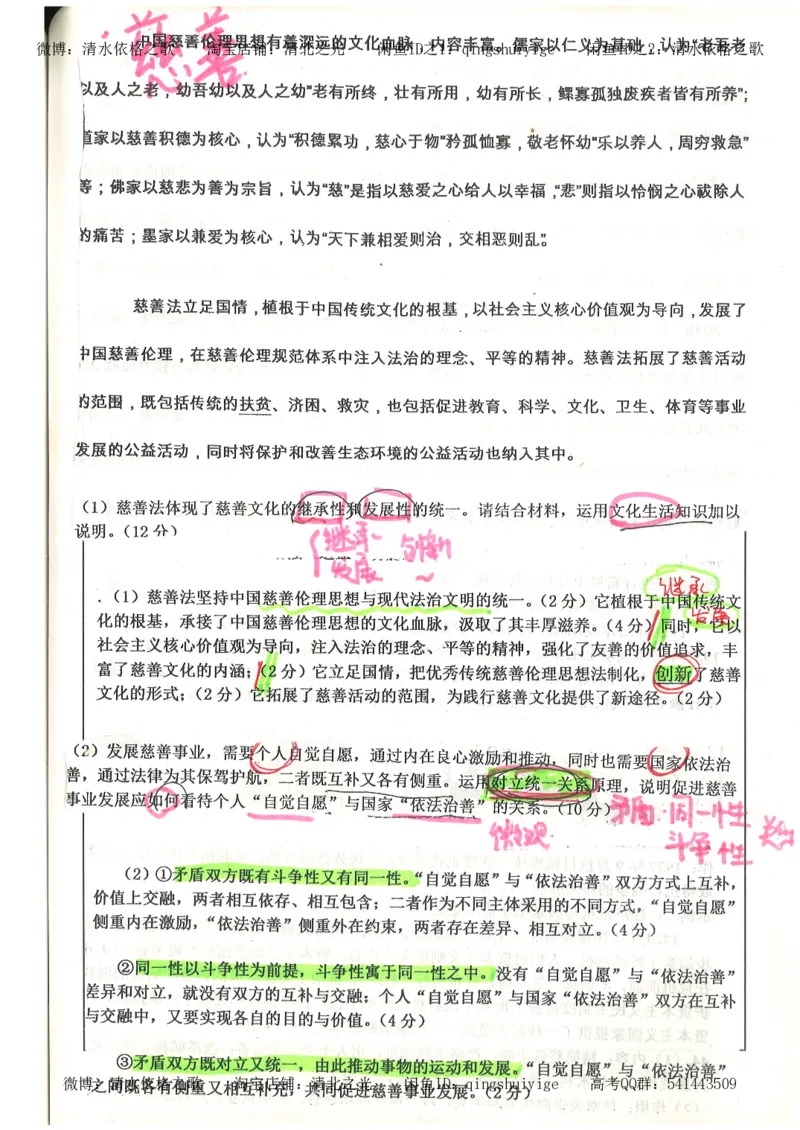 慈善
中国慈善伦理思想有着深远的文化血脉，内容丰富。儒家以仁义为基础，认为“老吾老
微博：清水依格之歌 淘宝店铺：清北之光 闲鱼ID之1：qingshuiyige 闲鱼ID之2：清水依格之歌
以及人之老，幼吾幼以及人之幼”“老有所终，壮有所用，幼有所长，鳏寡孤独废疾者皆有所养”；
道家以慈善积德为核心，认为“积德累功，慈心于物”“矜孤恤寡，敬老怀幼”“乐以养人，周穷救急”
等；佛家以慈悲为善为宗旨，认为“慈”是指以慈爱之心给人以幸福，“悲”则指以怜悯之心祓除人
的痛苦；墨家以兼爱为核心，认为“天下兼相爱则治，交相恶则乱”。
慈善法立足国情，植根于中国传统文化的根基，以社会主义核心价值观为导向，发展了
中国慈善伦理，在慈善伦理规范体系中注入法治的理念、平等的精神。慈善法拓展了慈善活动
的范围，既包括传统的扶贫、济困、救灾，也包括促进教育、科学、文化、卫生、体育等事业
发展的公益活动，同时将保护和改善生态环境的公益活动也纳入其中。
（1）慈善法体现了慈善文化的继承性和发展性的统一。请结合材料，运用文化生活知识加以
说明。（12分）
继承 与创新
发展
继承
发展
（1）慈善法坚持中国慈善伦理思想与现代法治文明的统一。（2分）它植根于中国传统文
化的根基，承接了中国慈善伦理思想的文化血脉，汲取了其丰厚滋养。（4分）同时，它以
社会主义核心价值观为导向，注入法治的理念、平等的精神，强化了友善的价值追求，丰
富了慈善文化的内涵；（2分）它立足国情，把优秀传统慈善伦理思想法制化，创新了慈善
文化的形式；（2分）它拓展了慈善活动的范围，为践行慈善文化提供了新途径。（2分）
（2）发展慈善事业，需要个人自觉自愿，通过内在良心激励和推动，同时也需要国家依法治
善，通过法律为其保驾护航，二者既互补又各有侧重。运用对立统一关系原理，说明促进慈善
事业发展应如何看待个人“自觉自愿”与国家“依法治善”的关系。（10分）
矛盾：同一性
斗争性
微观
（2）①矛盾双方既有斗争性又有同一性。“自觉自愿”与“依法治善”双方方式上互补，
价值上交融，两者相互依存、相互包含；二者作为不同主体采用的不同方式，“自觉自愿”
侧重内在激励，“依法治善”侧重外在约束，两者存在差异、相互对立。（4分）
②同一性以斗争性为前提，斗争性寓于同一性之中。没有“自觉自愿”与“依法治善”
差异和对立，就没有双方的互补与交融；个人“自觉自愿”与国家“依法治善”双方在互补
与交融中，又要实现各自的目的与价值。（4分）
③矛盾双方既对立又统一，由此推动事物的运动和发展。“自觉自愿”与“依法治善”
之间既各有侧重又相互补充，共同促进慈善事业发展。（2分）
微博：清水依格之歌 淘宝店铺：清北之光 闲鱼ID：qingshuiyige 高考QQ群：541443509